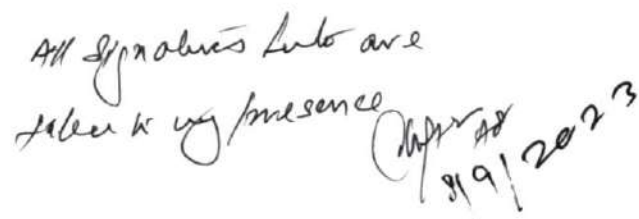 All signatures are
taken in my presence
8/9/2023